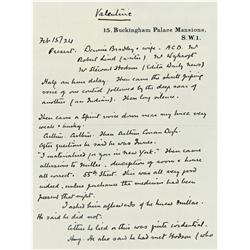 Valentine
15. Buckingham Palace Mansions,
S.W.1.
Feb 15/24
Present. Dennis Bradley & wife. A.C.D. Mr
Robert Lind (critic) Mr
Mr Stewart Hodson (Edits Daily News)
Half an hour delay. Then came the small piping
voice of one control followed by the deep voice of
another (an Indian). Then long silence.
Then came a spirit voice down near my knees very
weak & husky.
Arthur. Arthur. Then Arthur Conan Doyle.
After questions he said he was Innes.
"I materialised for you in New York." Then came
allusions to Miller, description of room & house
all correct. 55th Street. This was all very good
indeed, unless perchance the medium had been
present that night.
I asked him afterwards if he knew Millar.
He said he did not.
Either he lied or this was quite evidential.
He said he also had met Hodson (who